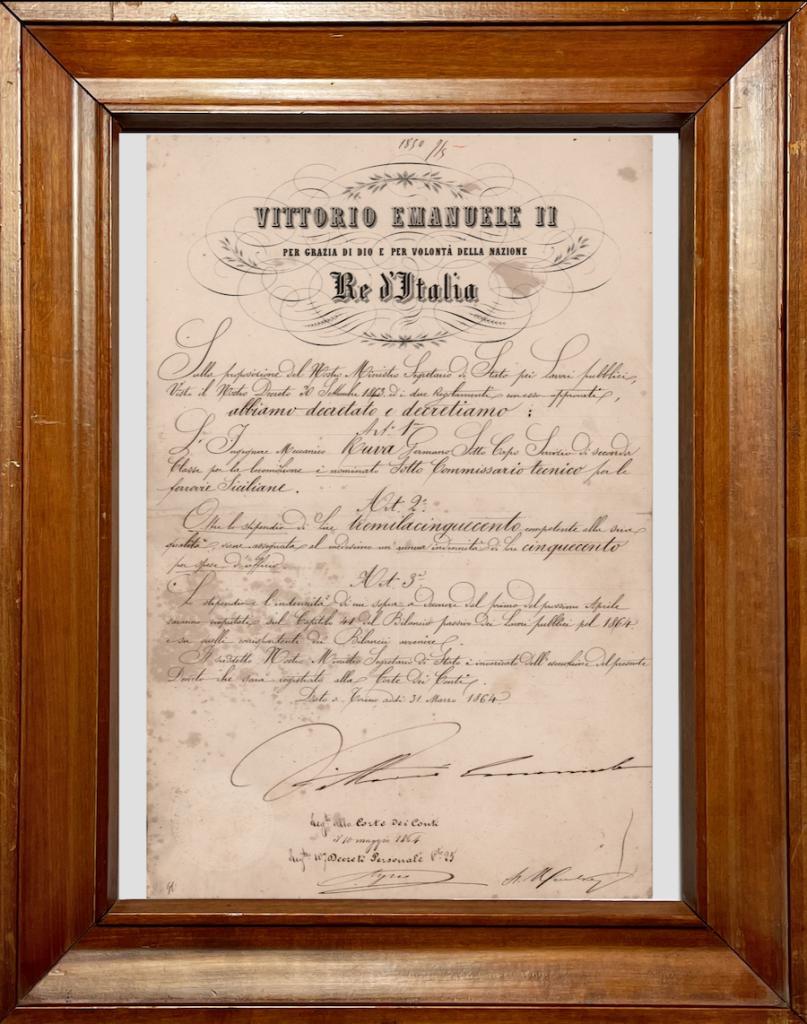 1850
VITTORIO EMANUELE II
PER GRAZIA DI DIO E PER VOLONTÀ DELLA NAZIONE
Re d'Italia
Sulla proposizione del Nostro Ministro Segretario di Stato pei Lavori pubblici,
Visto il Nostro Decreto 30 Settembre 1863 ed i due Regolamenti con esso approvati,
abbiamo decretato e decretiamo :
Art. 1º
L'Ingegnere Meccanico Ruva Germano Sotto Capo Servizio di seconda
Classe per la locomozione è nominato Sotto Commissario tecnico per le
ferrovie Siciliane.
Art. 2º
Oltre lo stipendio di Lire tremilacinquecento competente alla sua
qualità, viene assegnata al medesimo un'annua indennità di Lire cinquecento
per spese d'ufficio.
Art. 3º
Lo stipendio e l'indennità di cui sopra a decorrere dal primo del prossimo Aprile
saranno imputati sul Capitolo 41 del Bilancio passivo dei Lavori pubblici pel 1864
e su quelli corrispondenti dei Bilanci avvenire.
Il suddetto Nostro Ministro Segretario di Stato è incaricato dell'esecuzione del presente
Decreto che sarà registrato alla Corte dei Conti.
Dato a Torino addì 31 Marzo 1864
Vittorio Emanuele
Regto alla Corte dei Conti
10 maggio 1864
Regto 10 Decreti Personale 25